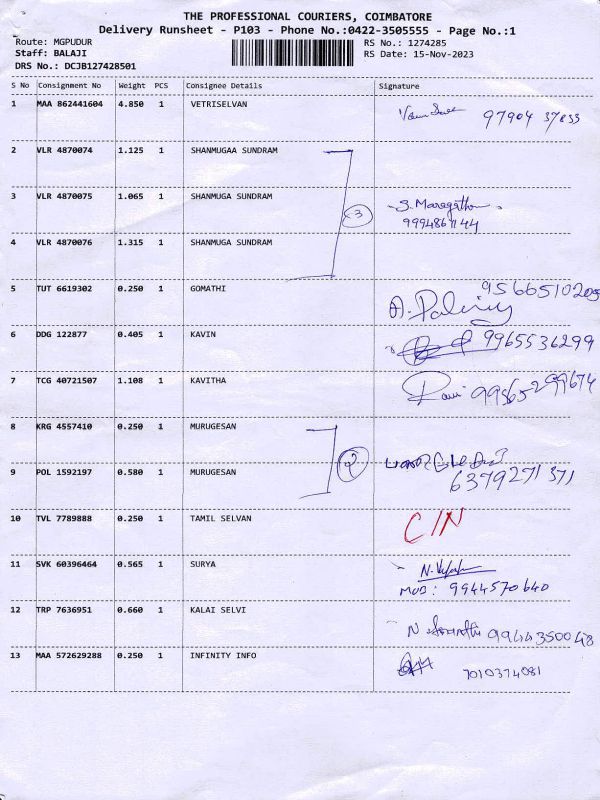 THE PROFESSIONAL COURIERS, COIMBATORE
Delivery Runsheet - P103 - Phone No.:0422-3505555 - Page No.:1
Route: MGPUDUR RS No.: 1274285
Staff: BALAJI RS Date: 15-Nov-2023
DRS No.: DCJB127428501
S No Consignment No Weight PCS Consignee Details Signature
1 MAA 862441604 4.850 1 VETRISELVAN 97904 37833
2 VLR 4870074 1.125 1 SHANMUGAA SUNDRAM
3 VLR 4870075 1.065 1 SHANMUGA SUNDRAM 3 S. Maragatham
9994867144
4 VLR 4870076 1.315 1 SHANMUGA SUNDRAM
5 TUT 6619302 0.250 1 GOMATHI 9566510205
6 DDG 122877 0.405 1 KAVIN 9965536299
7 TCG 40721507 1.108 1 KAVITHA Ravi
8 KRG 4557410 0.250 1 MURUGESAN
9 POL 1592197 0.580 1 MURUGESAN 2 6379271371
10 TVL 7789888 0.250 1 TAMIL SELVAN C/N
11 SVK 60396464 0.565 1 SURYA
MOB: 9944570640
12 TRP 7636951 0.660 1 KALAI SELVI 9944350048
13 MAA 572629288 0.250 1 INFINITY INFO 7010374081